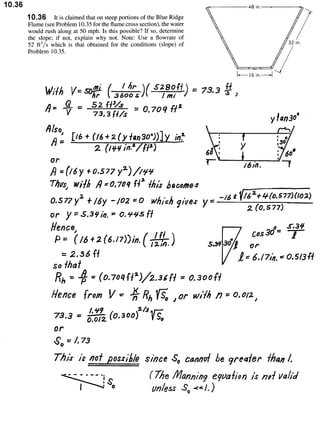 10.36
10.36 It is claimed that on steep portions of the Blue Ridge
Flume (see Problem 10.35 for the flume cross section), the water
would rush along at 50 mph. Is this possible? If so, determine
the slope; if not, explain why not. Note: Use a flowrate of
52 ft³/s which is that obtained for the conditions (slope) of
Problem 10.35.
48 in.
32 in.
16 in.
With V = 50 mi/hr ( 1 hr / 3600 s )( 5280 ft / 1 mi ) = 73.3 ft/s,
A = Q/V = 52 ft³/s / 73.3 ft/s = 0.709 ft²
Also,
A = [16 + (16 + 2(y tan30°))] y in² / 2 (144 in²/ft²)
y tan30°
y
60°
60°
16 in.
or
A = (16 y + 0.577 y²)/144
Thus, with A = 0.709 ft² this becomes
0.577 y² + 16y - 102 = 0 which gives y = -16 ± √16² + 4(0.577)(102) / 2 (0.577)
or y = 5.34 in. = 0.445 ft
Hence,
P = (16 + 2(6.17)) in. ( 1 ft / 12 in. )
= 2.36 ft
5.34
30°
l
cos 30° = 5.34/l
or
l = 6.17 in. = 0.513 ft
so that
R_h = A/P = (0.709 ft²)/2.36 ft = 0.300 ft
Hence from V = K/n R_h^2/3 √S₀, or with n = 0.012,
73.3 = 1.49/0.012 (0.300)^2/3 √S₀
or
S₀ = 1.73
This is not possible since S₀ cannot be greater than 1.
1
S₀
(The Manning equation is not valid
unless S₀ << 1.)